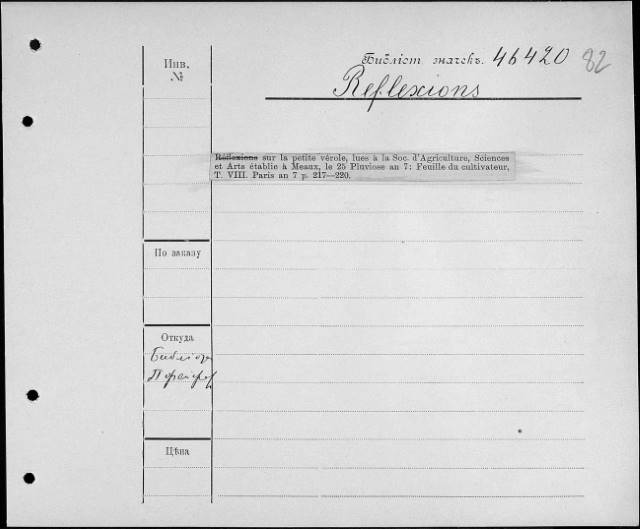 Инв.
№
Библіот. значекъ. 46420 82
Reflexions
Réflexions sur la petite vérole, lues à la Soc. d'Agriculture, Sciences
et Arts établie à Meaux, le 25 Pluviose an 7: Feuille du cultivateur,
T. VIII. Paris an 7 p. 217—220.
По заказу
Откуда
Цѣна